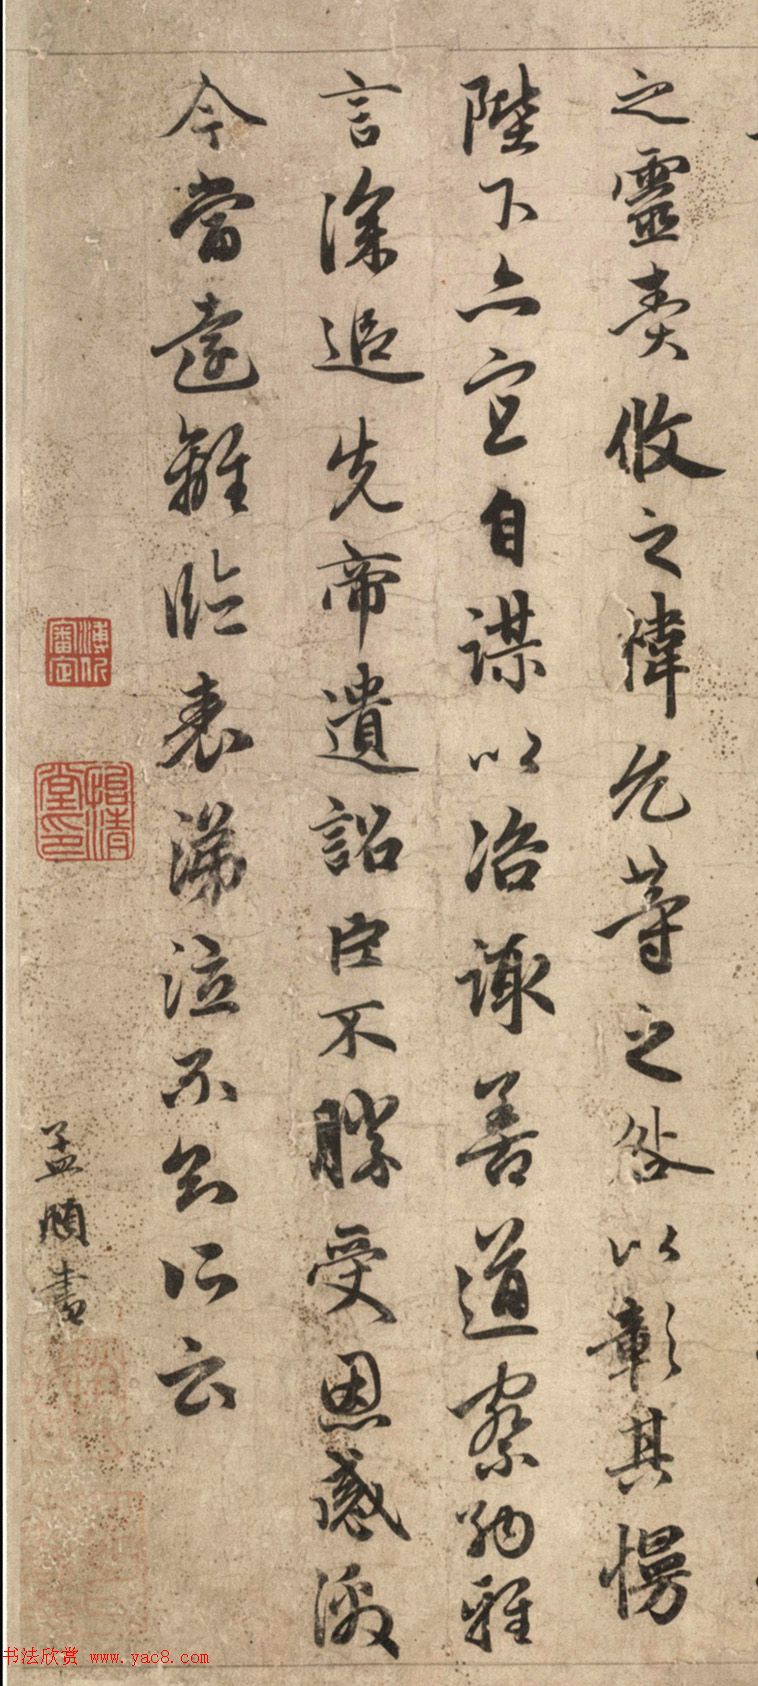 之靈責攸之禕允等之咎以彰其慢
陛下亦宜自謀以咨諏善道察納雅
言深追先帝遺詔臣不勝受恩感激
今當遠離臨表涕泣不知所云
孟頫書
審定
怡清堂印
书法欣赏 www.yac8.com